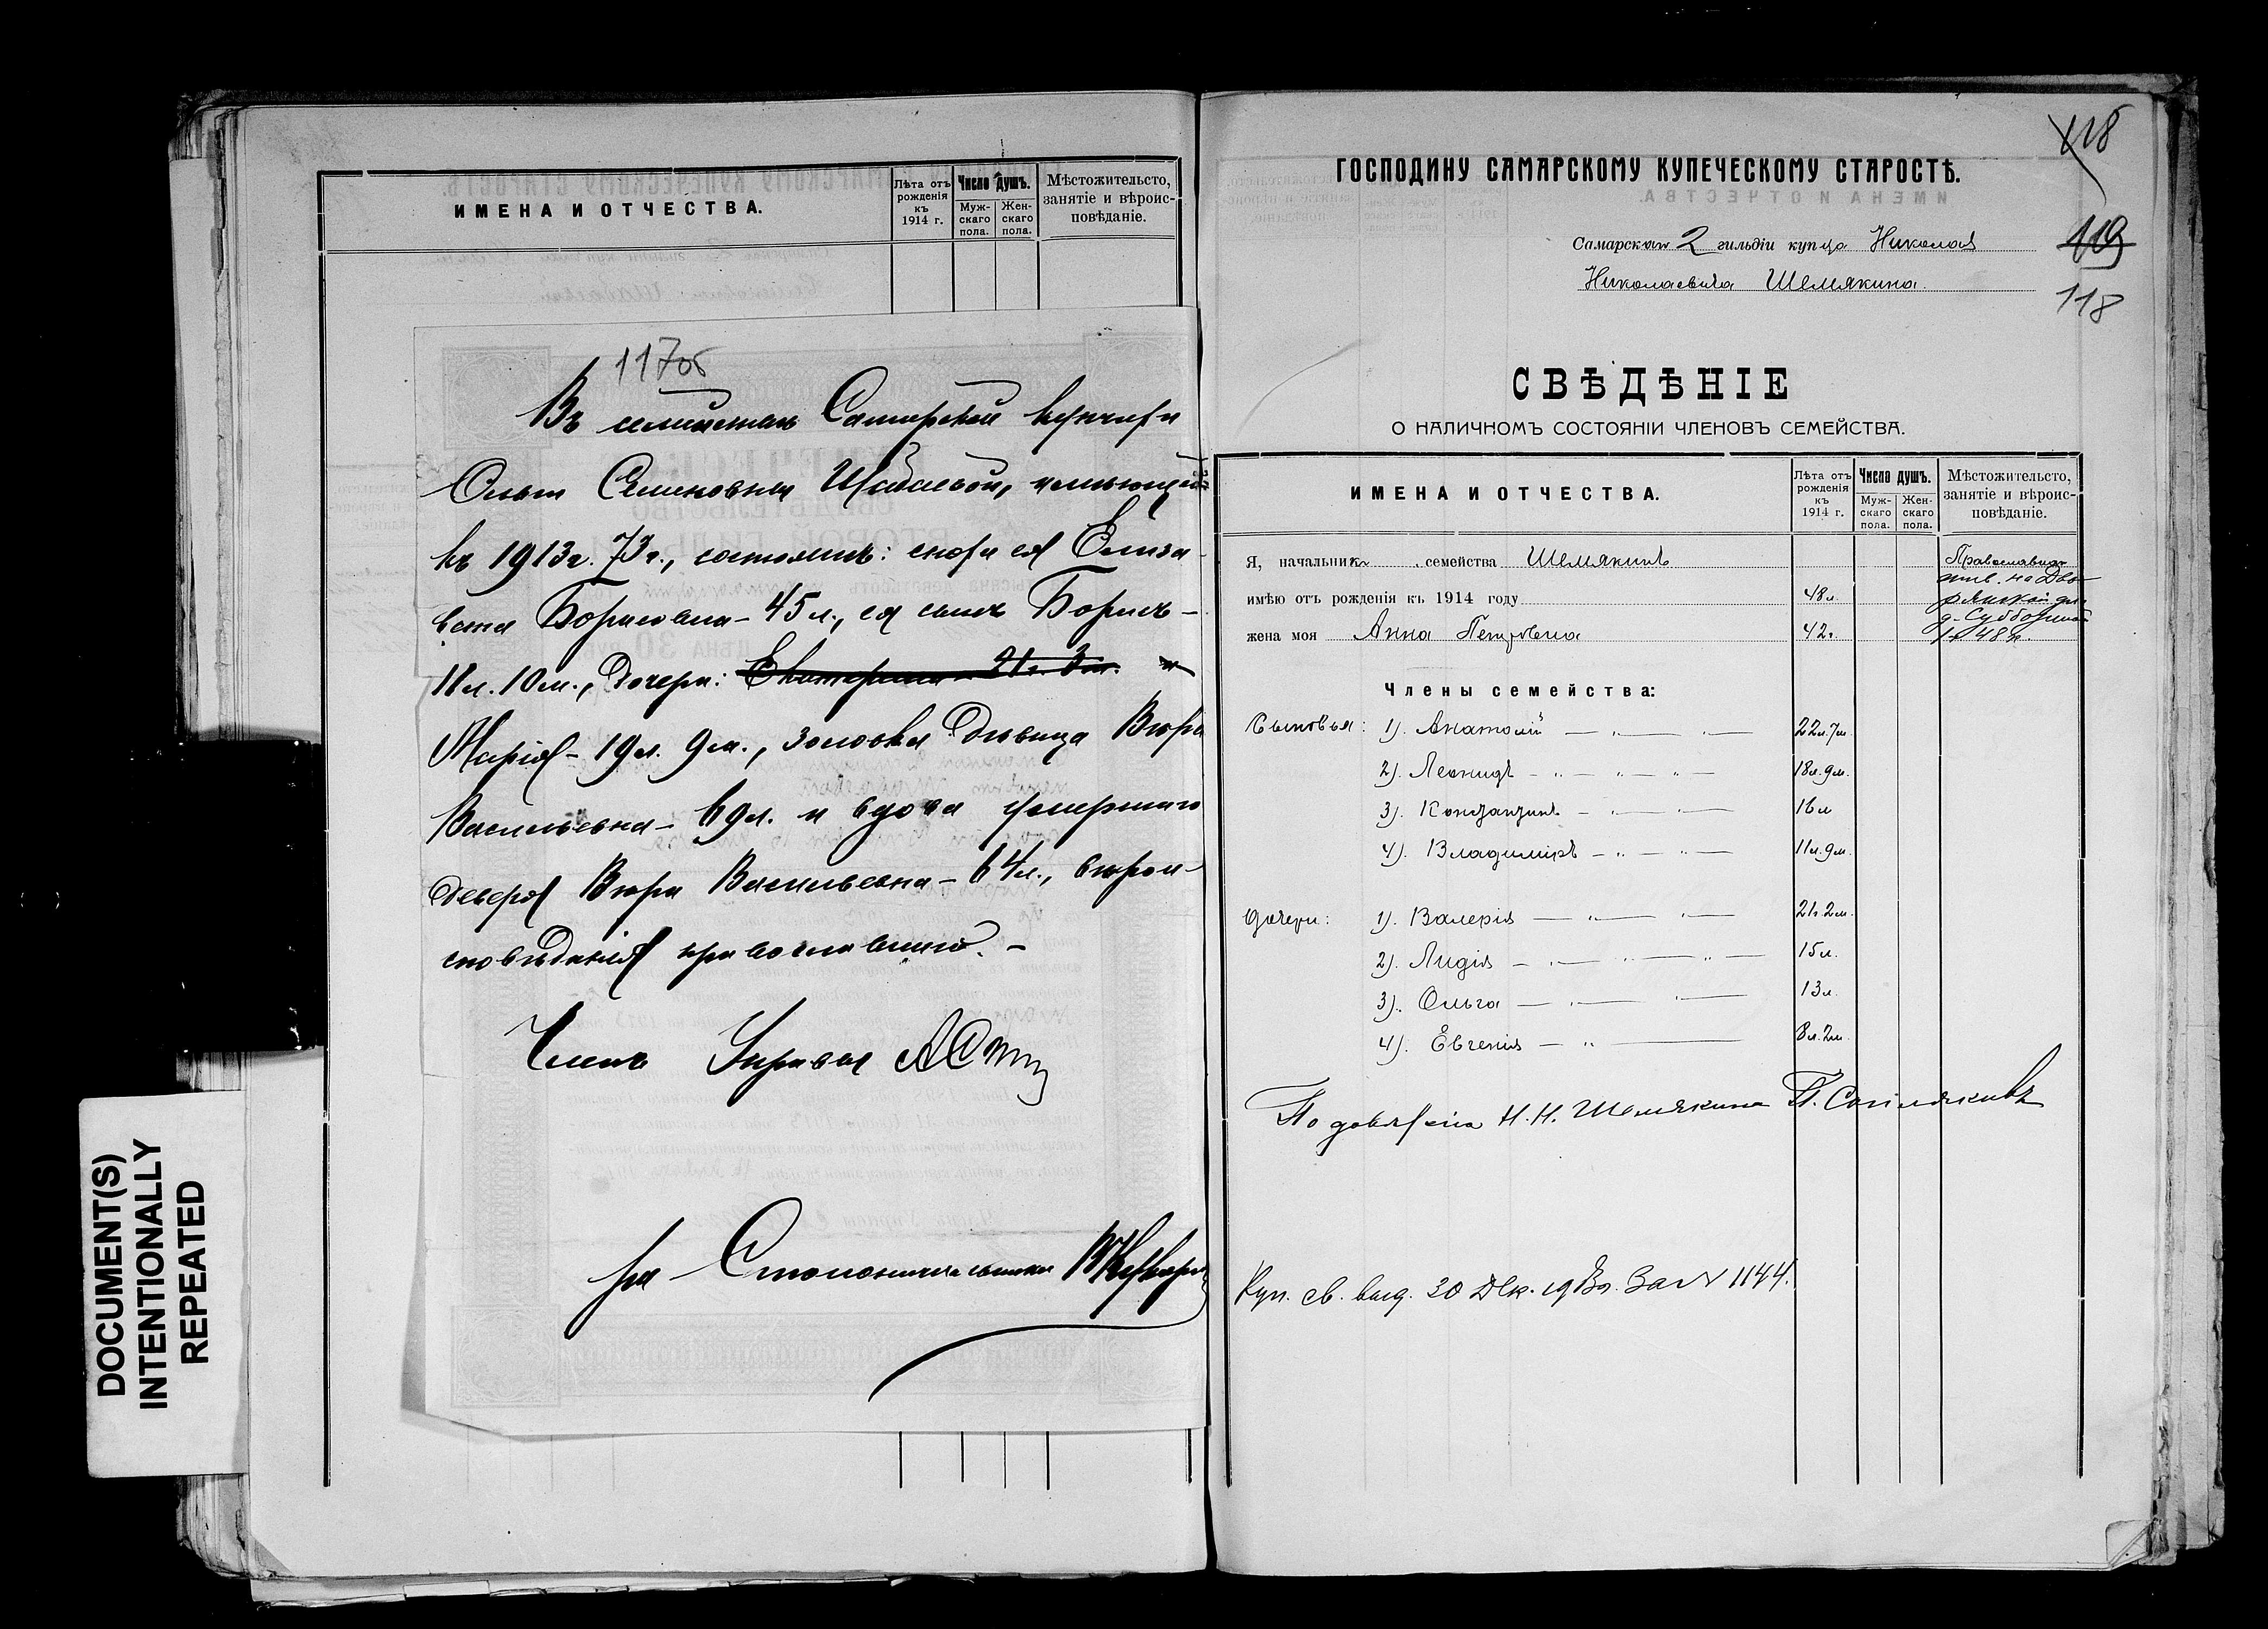 DOCUMENT(S)
INTENTIONALLY
REPEATED
ИМЕНА И ОТЧЕСТВА.
Лѣта отъ рожденія къ 1914 г.
Число душъ.
Муж-скаго пола.
Жен-скаго пола.
Мѣстожительсто, занятіе и вѣроис-повѣданіе.
117об
Въ семействѣ Самарской купчихи
Ольги Семеновны Шабаевой, имѣющей
къ 1913г. 73г., состоятъ: сноха ея Елиза-
вета Борисовна - 45л., ея сынъ Борисъ -
18л. 10м., дочери: Екатерина - 21г. 3м. и
Марія - 19л. 9м., золовка дѣвица Вѣра
Васильевна - 69л. и вдова умершаго
деверя Вѣра Васильевна - 64л., вѣрои-
сповѣданія православнаго. -
Членъ Управы
За Столоначальника
118
119
118
ГОСПОДИНУ САМАРСКОМУ КУПЕЧЕСКОМУ СТАРОСТѢ.
Самарскаго 2 гильдіи купца Николая
Николаевича Шемякина.
СВѢДѢНІЕ
О НАЛИЧНОМЪ СОСТОЯНІИ ЧЛЕНОВЪ СЕМЕЙСТВА.
ИМЕНА И ОТЧЕСТВА.
Лѣта отъ рожденія къ 1914 г.
Число душъ.
Муж-скаго пола.
Жен-скаго пола.
Мѣстожительсто, занятіе и вѣроис-повѣданіе.
Я, начальникъ семейства Шемякинъ
Православная
жив. на Дво-
имѣю отъ рожденія къ 1914 году 48л.
рянской ул.
жена моя Анна Петровна 42г.
д. Субботиной
№ 48
Члены семейства:
Сыновья: 1). Анатолій — „ — „ — 22л. 7м.
2). Леонидъ — „ — „ — „ — 18л. 9м.
3). Константинъ — „ — „ — 16л
4). Владиміръ — „ — „ — 11л. 9м.
Дочери: 1). Валерія — „ — „ — 21г. 2м.
2). Лидія — „ — „ — „ — 15л.
3). Ольга — „ — „ — 13л.
4). Евгенія — „ — 8л. 2м.
По довѣрію Н. Н. Шемякина П.
Куп. св. выд. 30 Дек. 1913г. За № 1144.